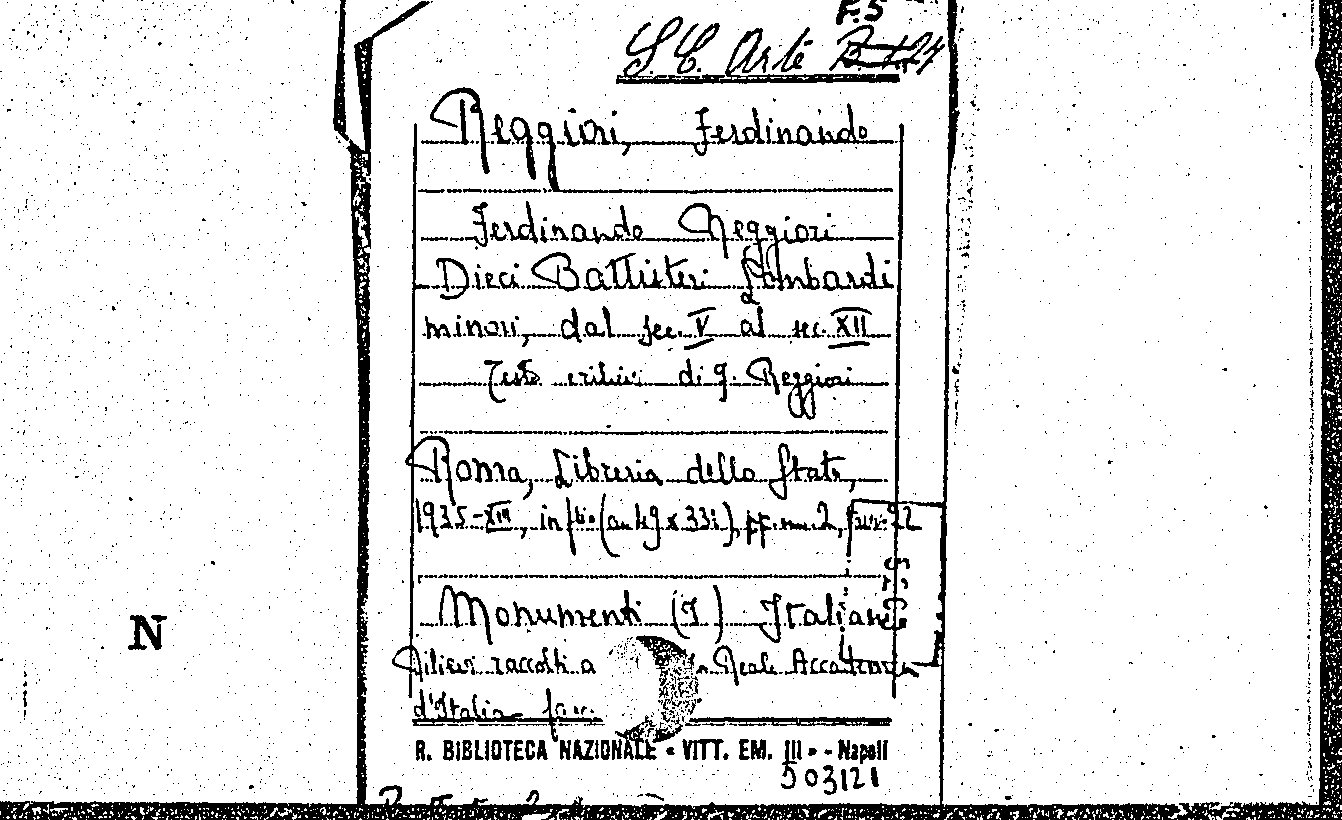 F.5
S.C. Arte B.1.24
Reggiori, Ferdinando
Ferdinando Reggiori
Dieci Battisteri Lombardi
minori, dal sec. V al sec. XII
Testo critico di F. Reggiori
Roma, Libreria dello Stato,
1935-XIII, in
Monumenti (I) Italiani
Rilievi raccolti a Reale Accademia
d'Italia fasc.
R. BIBLIOTECA NAZIONALE • VITT. EM. III • - Napoli
503121
N